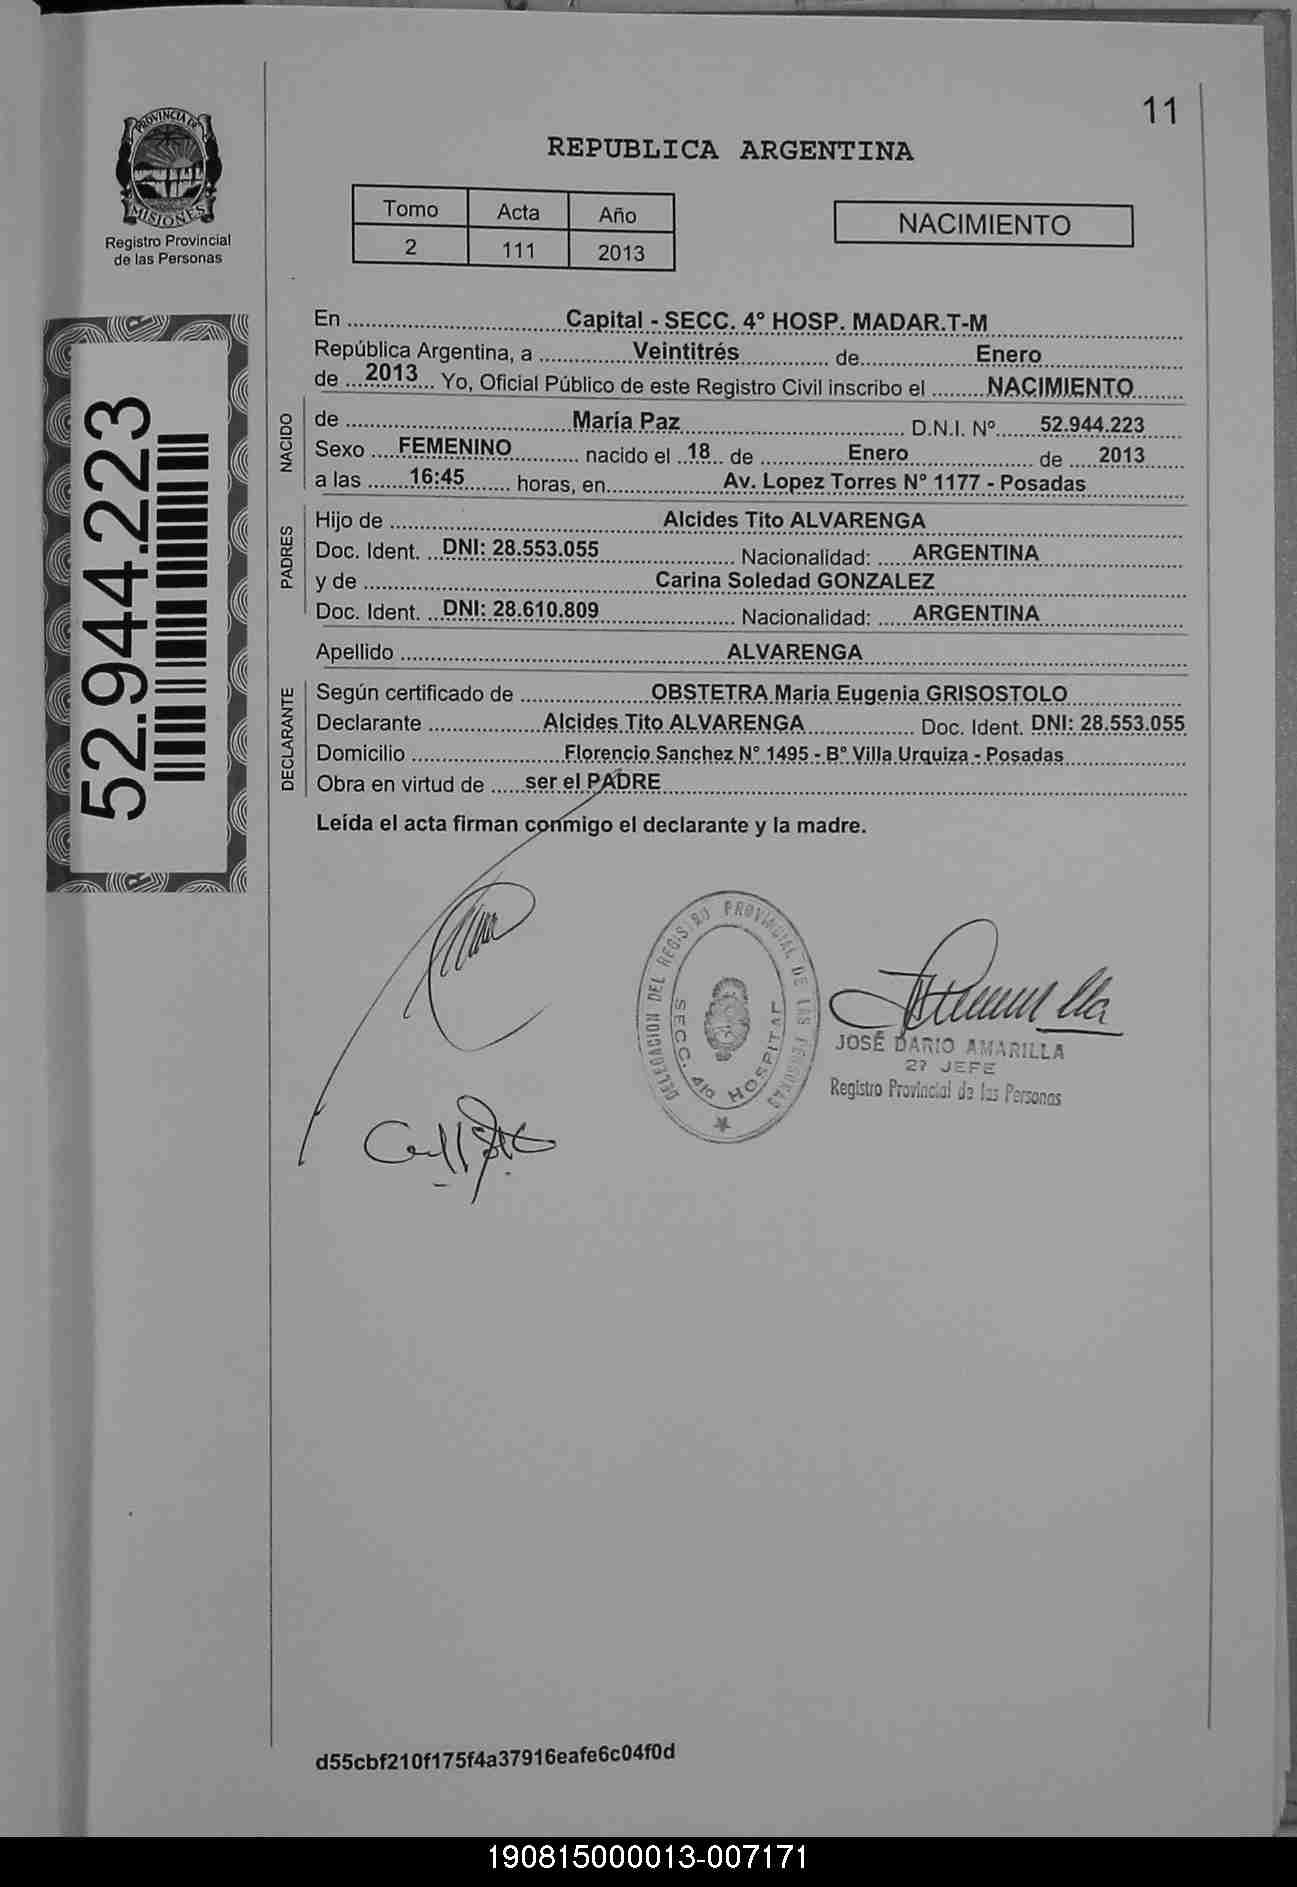 11
PROVINCIA DE
MISIONES
Registro Provincial
de las Personas
REPUBLICA ARGENTINA
Tomo Acta Año
2 111 2013
NACIMIENTO
52.944.223
En Capital - SECC. 4° HOSP. MADAR.T-M
República Argentina, a Veintitrés de Enero
de 2013 Yo, Oficial Público de este Registro Civil inscribo el NACIMIENTO
NACIDO
de María Paz D.N.I. Nº 52.944.223
Sexo FEMENINO nacido el 18 de Enero de 2013
a las 16:45 horas, en Av. Lopez Torres N° 1177 - Posadas
PADRES
Hijo de Alcides Tito ALVARENGA
Doc. Ident. DNI: 28.553.055 Nacionalidad: ARGENTINA
y de Carina Soledad GONZALEZ
Doc. Ident. DNI: 28.610.809 Nacionalidad: ARGENTINA
Apellido ALVARENGA
DECLARANTE
Según certificado de OBSTETRA Maria Eugenia GRISOSTOLO
Declarante Alcides Tito ALVARENGA Doc. Ident. DNI: 28.553.055
Domicilio Florencio Sanchez N° 1495 - B° Villa Urquiza - Posadas
Obra en virtud de ser el PADRE
Leída el acta firman conmigo el declarante y la madre.
DELEGACION DEL REGISTRO PROVINCIAL DE LAS PERSONAS
SECC. 4ta HOSPITAL
JOSÉ DARIO AMARILLA
2º JEFE
Registro Provincial de las Personas
d55cbf210f175f4a37916eafe6c04f0d
190815000013-007171